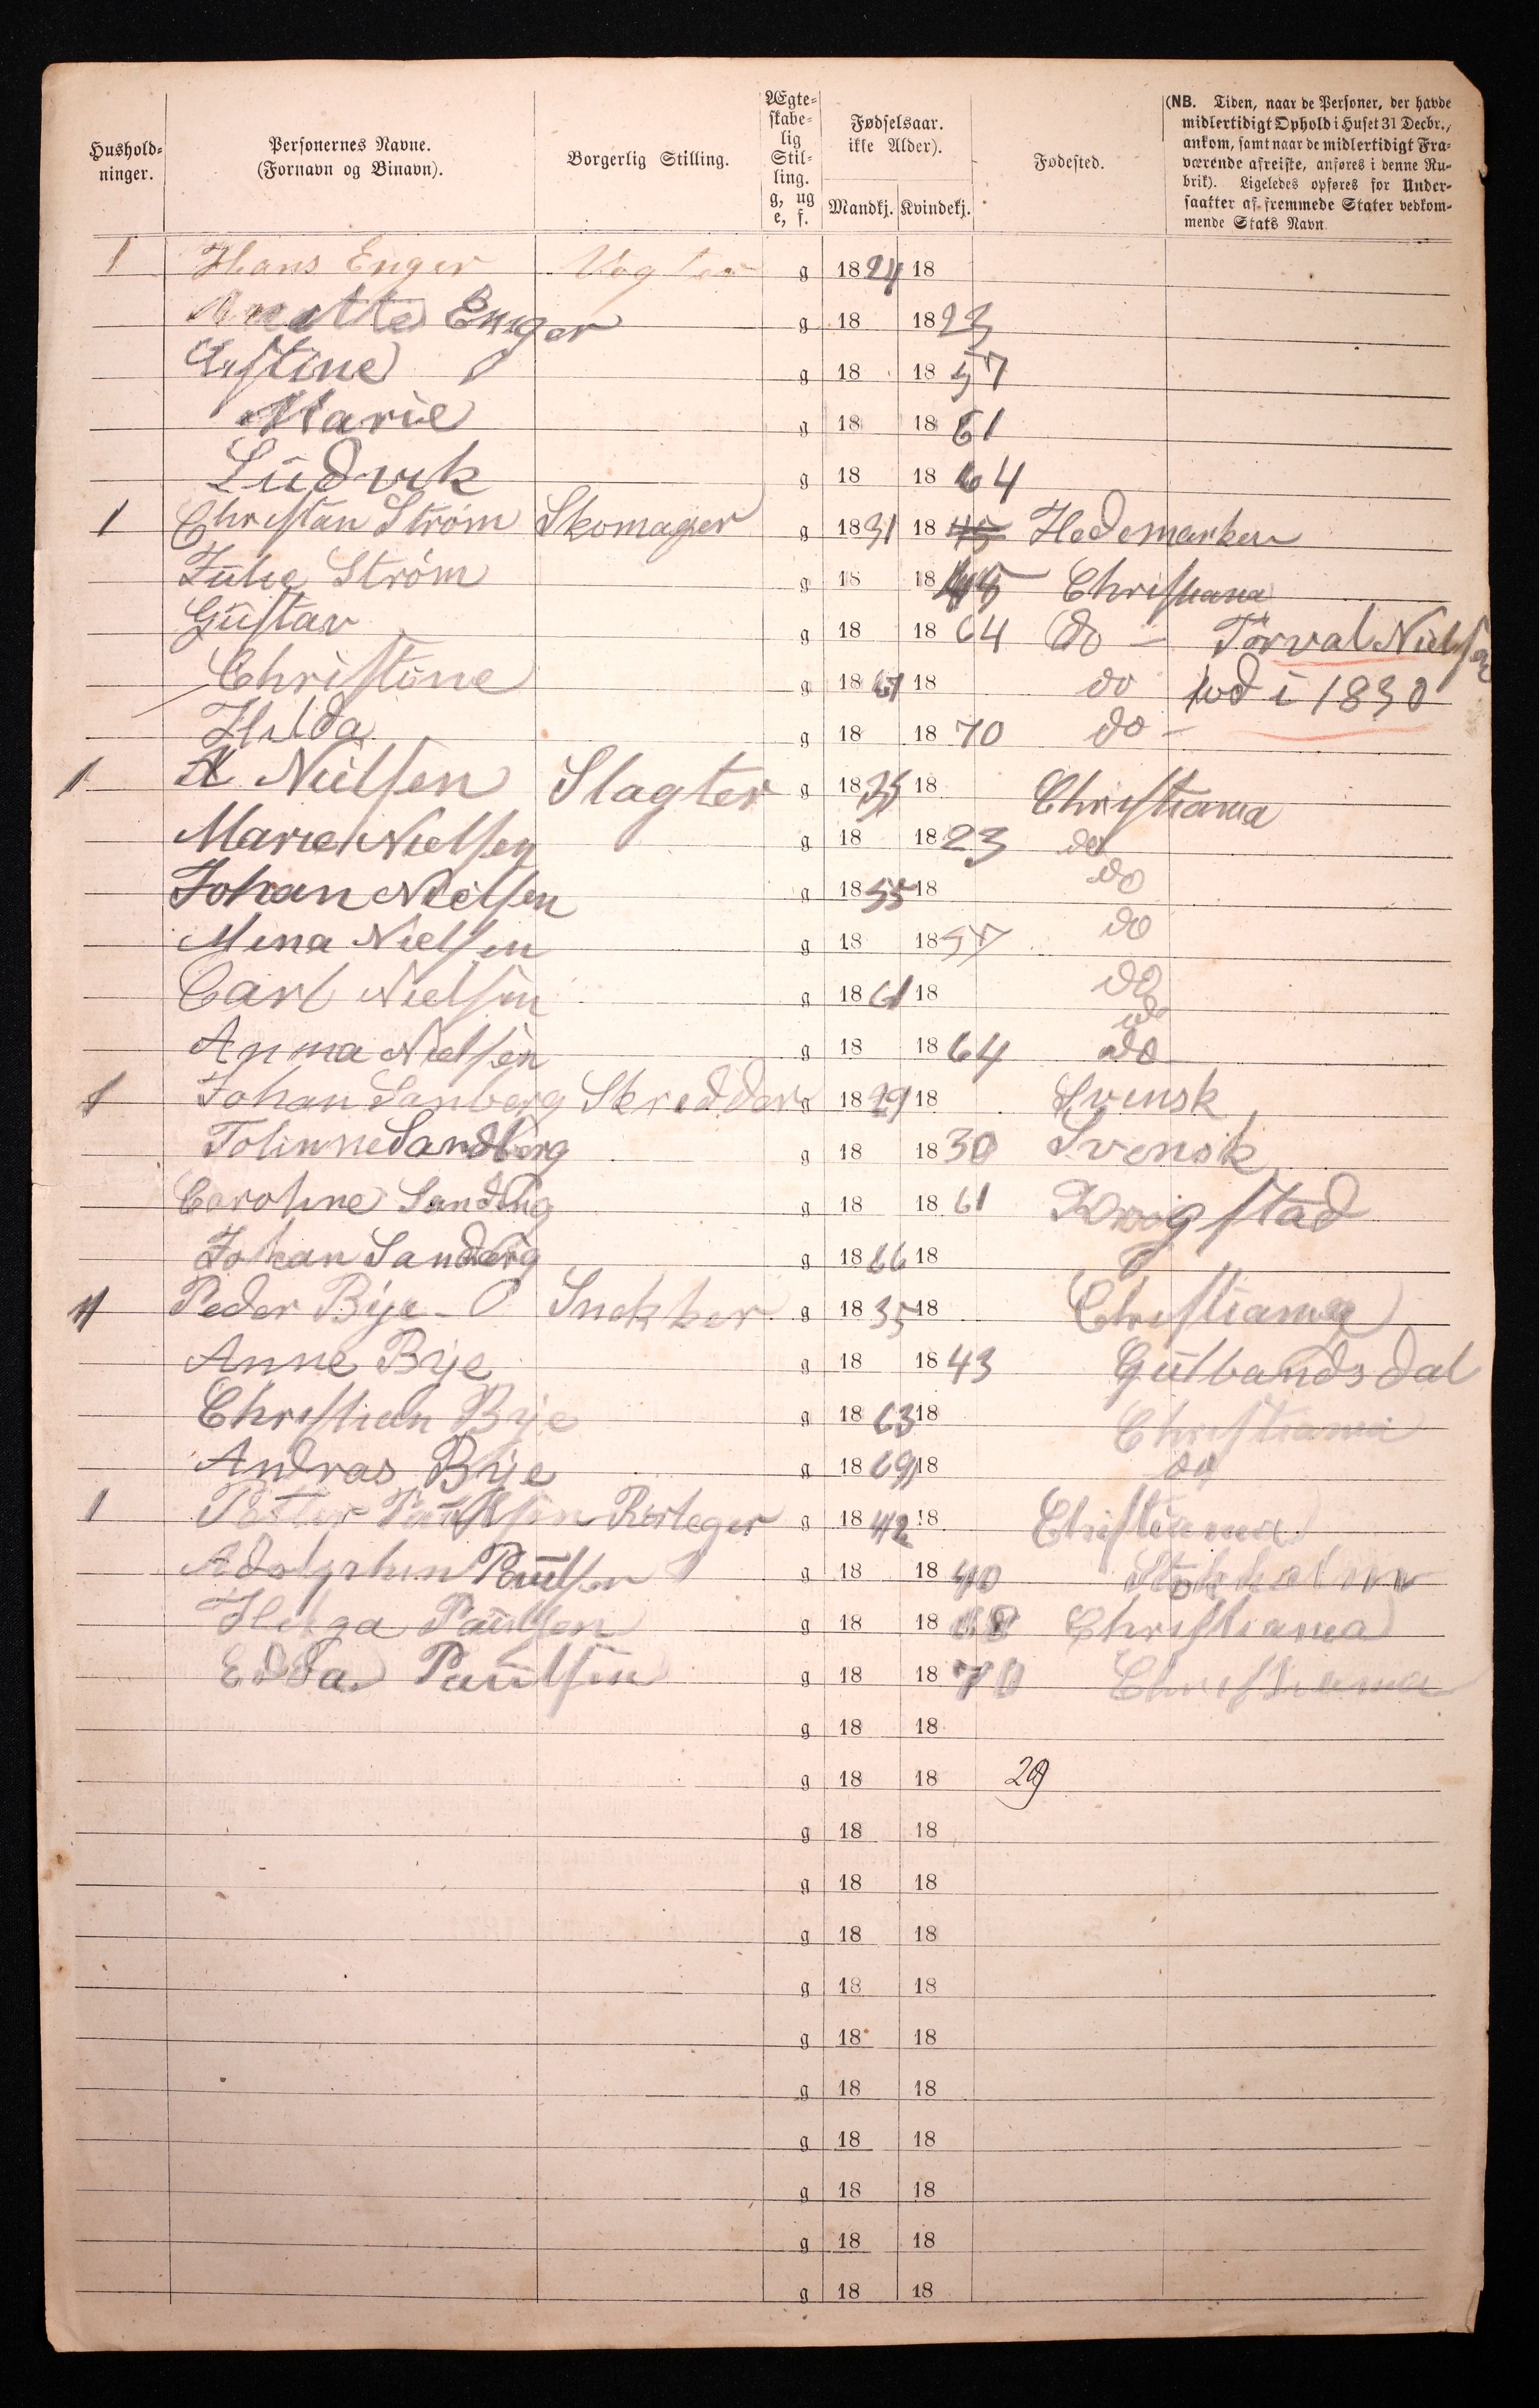 Hushold-
ninger.
Personernes Navne.
(Fornavn og Binavn).
Borgerlig Stilling.
Ægte-
skabe-
lig
Stil-
ling.
g, ug
e, f.
Fødselsaar.
ikke Alder).
Mandkj. Kvindekj.
Fødested.
(NB. Tiden, naar de Personer, der havde
midlertidigt Ophold i Huset 31 Decbr.,
ankom, samt naar de midlertidigt Fra-
værende afreiste, anføres i denne Ru-
brik). Ligeledes opføres for Under-
saatter af fremmede Stater vedkom-
mende Stats Navn.
1 Hans Enger Vogter g 1824 18
Enger g 18 1823
g 18 1857
Marie g 18 1861
Ludvik g 18 1864
1 Christan Strøm Skomager g 1831 18 45 Hedemarken
Julie Strøm g 18 1845 Christiana
Gustav g 18 1864 do - Torval Nielsen
Christine g 1867 18 do fød i 1830
Hilda g 18 1870 do -
1 A Neilsen Slagter g 1835 18 Christiania
Marie Nielsen g 18 1823 do
Johan Nielsen g 1855 18 do
Mina Nielsen g 18 1857 do
Carl Nielsen g 1861 18 do
do
Anna Nielsen g 18 1864 do
1 Johan Sanberg Skreddar g 1829 18 Svensk
Sandberg g 18 1830 Svensk
Caroline Sandbrg g 18 1861 Krogstad
Johan Sandberg g 1866 18
1 Peder Bye - Snekker g 1835 18 Christiania
Anne Bye g 18 1843 Gulbandsdal
Christian Bye g 1863 18 Christiania
Andras Bye g 1869 18 do
1 Petter Paulsen Rørleger g 1842 18 Christiania
Paulsen g 18 1840 Stokholm
Helga Paulsen g 18 1868 Christiania
Edda Paulsen g 18 1870 Christiania
g 18 18
g 18 18 29
g 18 18
g 18 18
g 18 18
g 18 18
g 18 18
g 18 18
g 18 18
g 18 18
g 18 18
g 18 18